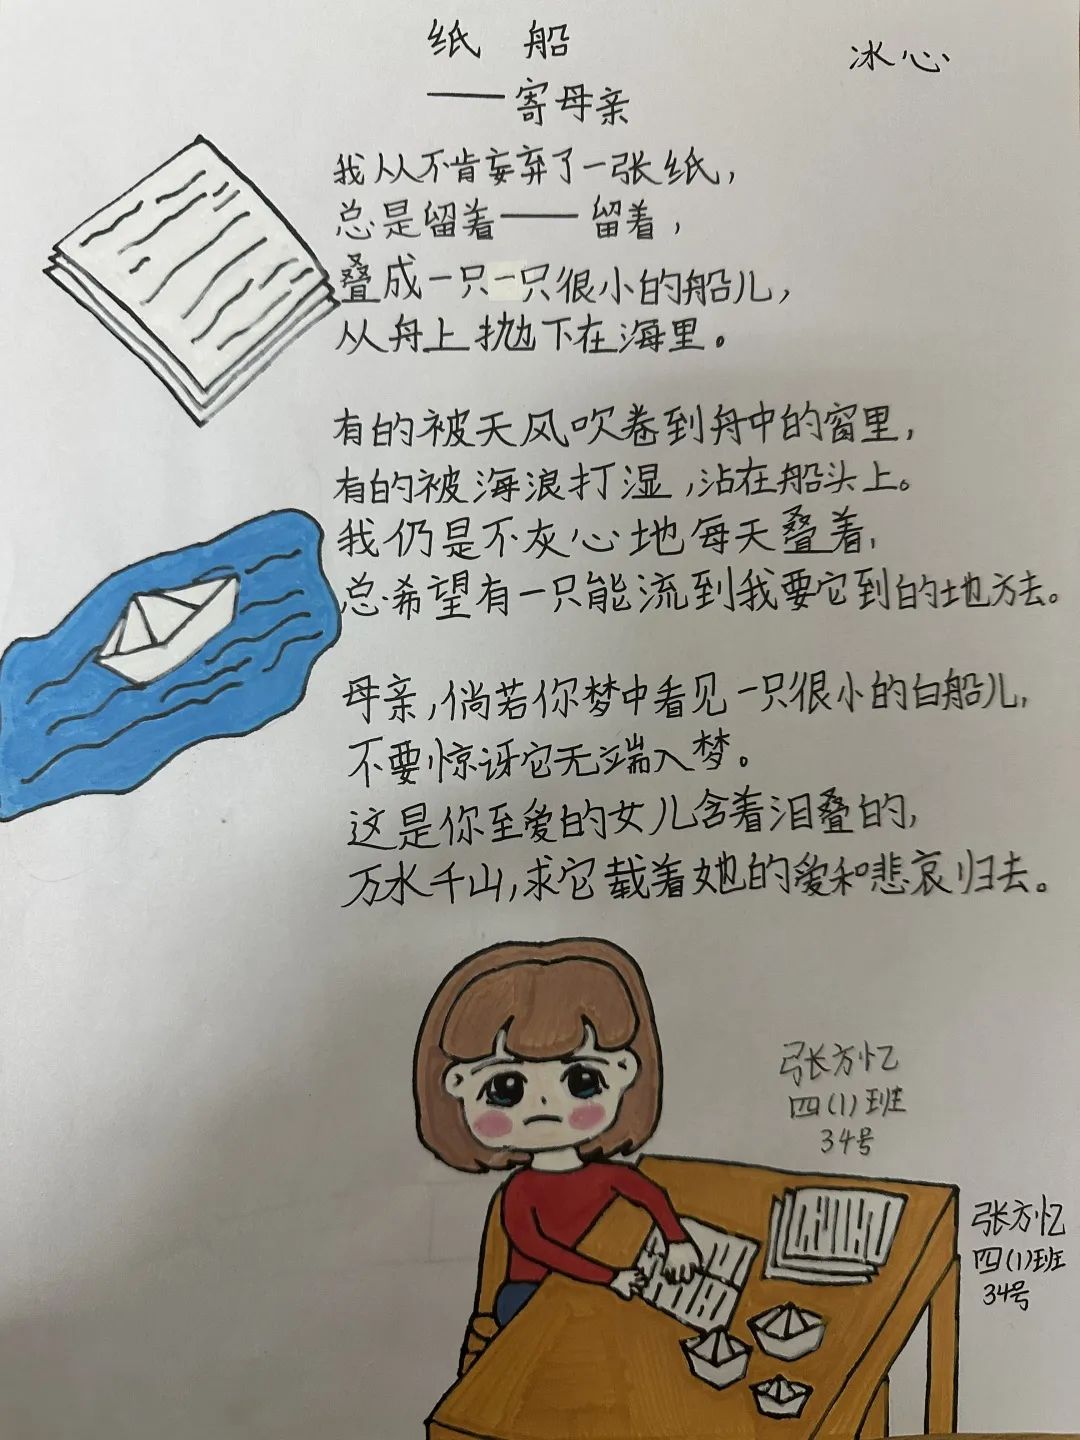 纸 船
冰心
——寄母亲
我从不肯妄弃了一张纸，
总是留着——留着，
叠成一只一只很小的船儿，
从舟上抛下在海里。
有的被天风吹卷到舟中的窗里，
有的被海浪打湿，沾在船头上。
我仍是不灰心地每天叠着，
总希望有一只能流到我要它到的地方去。
母亲，倘若你梦中看见一只很小的白船儿，
不要惊讶它无端入梦。
这是你至爱的女儿含着泪叠的，
万水千山，求它载着她的爱和悲哀归去。
张方忆
四(1)班
34号
张方忆
四(1)班
34号